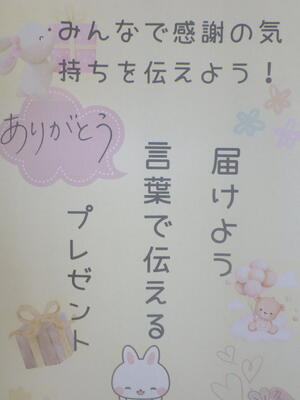 みんなで感謝の気
持ちを伝えよう！
ありがとう
届けよう
言葉で伝える
プレゼント